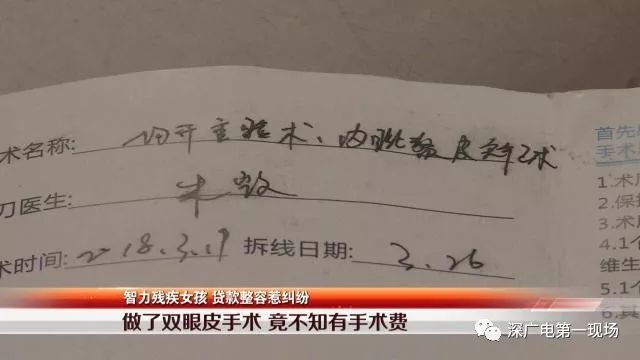 术名称: 切开重睑术、内眦赘皮矫正术
首先
手术
刀医生:
1.术
2.保持
术时间: 2018.3.19 拆线日期: 3.26
3.术
4.1个
维生
5.1个
6.其
智力残疾女孩 贷款整容惹纠纷
做了双眼皮手术 竟不知有手术费
深广电第一现场